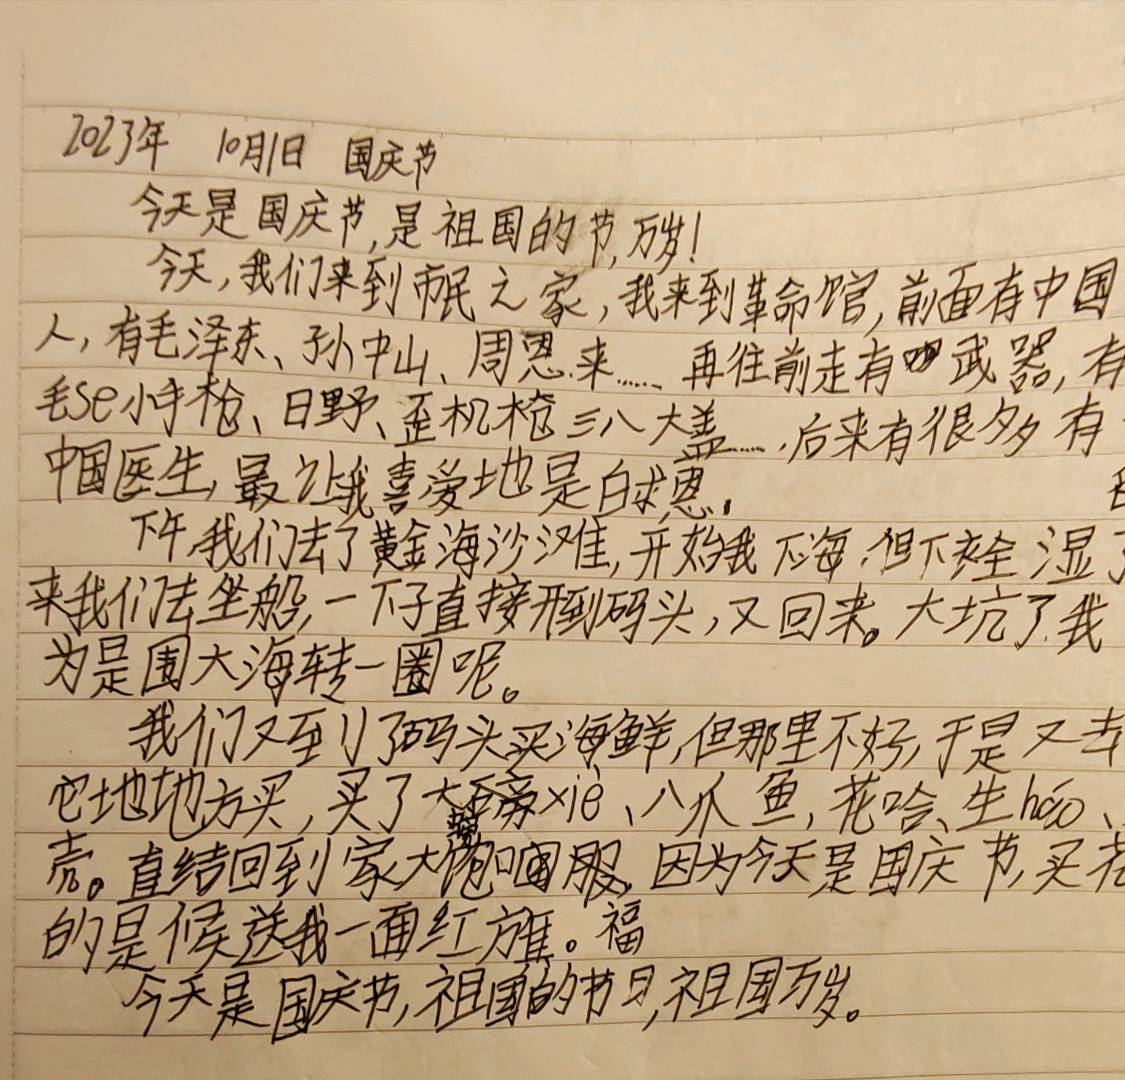 2023年 10月1日 国庆节
今天是国庆节,是祖国的节,万岁!
今天,我们来到市民之家,我来到革命馆,前面有中国
人,有毛泽东、孙中山、周恩来……再往前走有 武器,有
毛se小手枪、日野、歪机枪三八大盖……,后来有很多多有
中国医生,最让我喜爱地是白求恩。
下午,我们去了黄金海沙滩,开始我下海,但下衣全湿了
来我们去坐船,一下子直接开到码头,又回来。大坑了,我
为是围大海转一圈呢。
我们又到了码头买海鲜,但那里不好,于是又去
它地地方买,买了大 xiè、八爪鱼,花哈、生háo、
壳。直结回到家大饱口服,因为今天是国庆节,买花
的是候送我一面红旗。福
今天是国庆节,祖国的节日,祖国万岁。